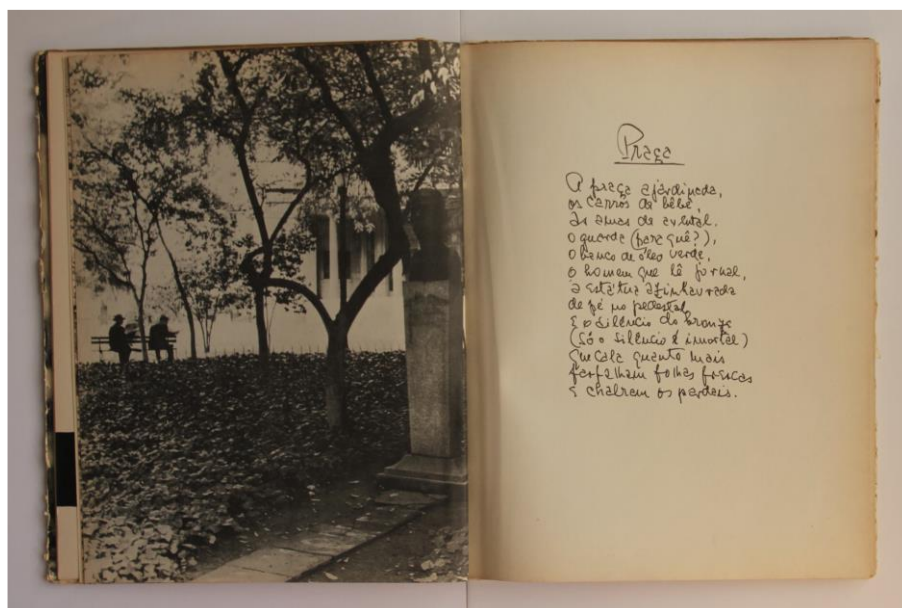 Praça
A praça ajardinada,
os carros de bêbê,
as amas de avental.
O guarda (para quê?),
O banco de óleo verde,
o homem que lê jornal,
a estátua azinhavrada
de pé no pedestal
E o silêncio do bronze
(Só o silêncio é imortal)
Que cala quanto mais
farfalham folhas frescas
e chalram os pardais.